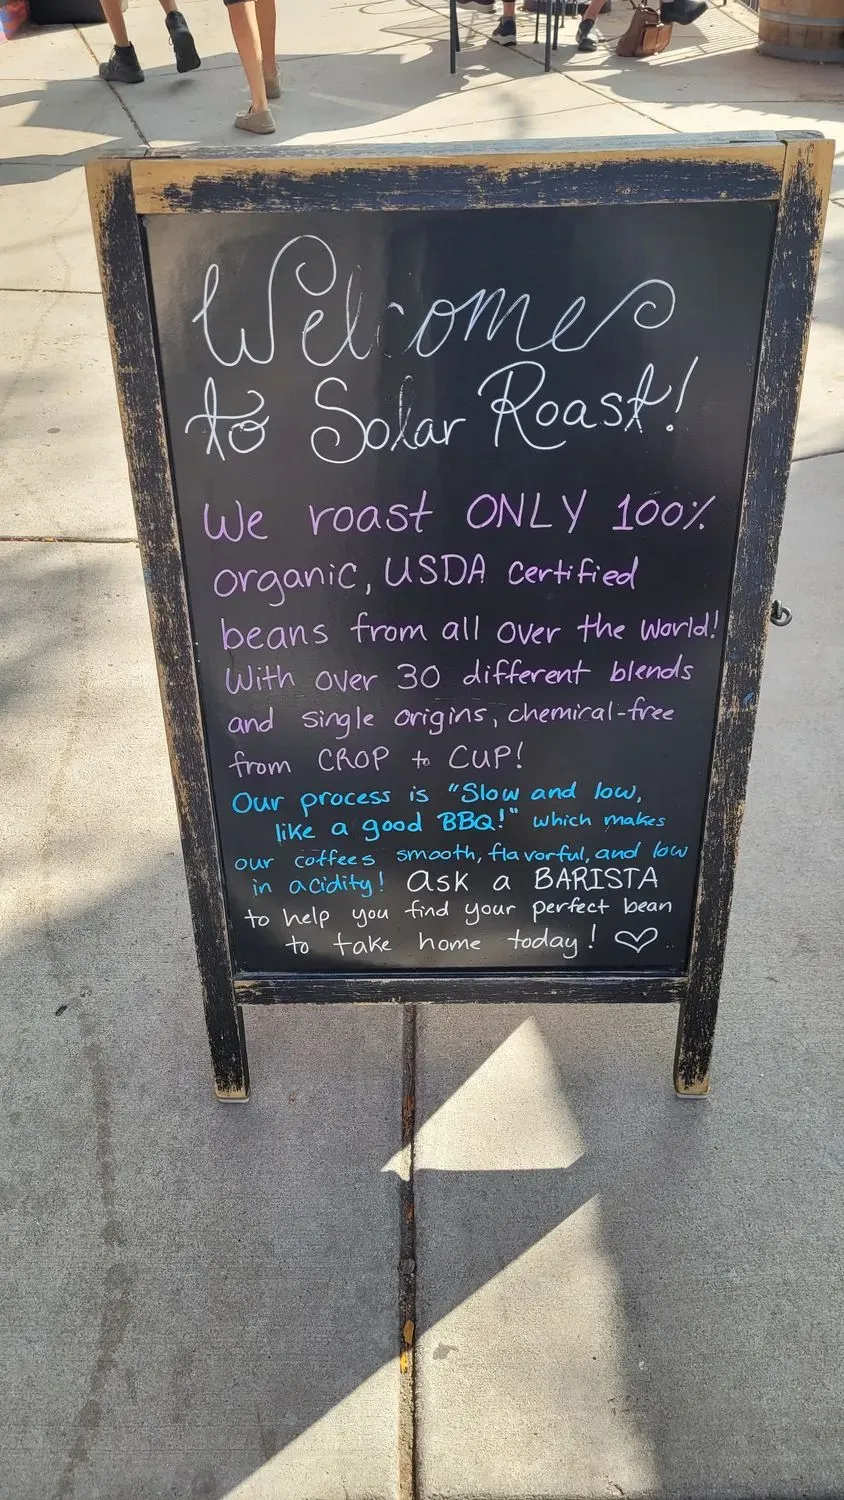 Welcome
to Solar Roast!
We roast ONLY 100%
organic, USDA certified
beans from all over the world!
With over 30 different blends
and single origins, chemical-free
from CROP to CUP!
Our process is "Slow and low,
like a good BBQ!" which makes
our coffees smooth, flavorful, and low
in acidity! ask a BARISTA
to help you find your perfect bean
to take home today! ♡